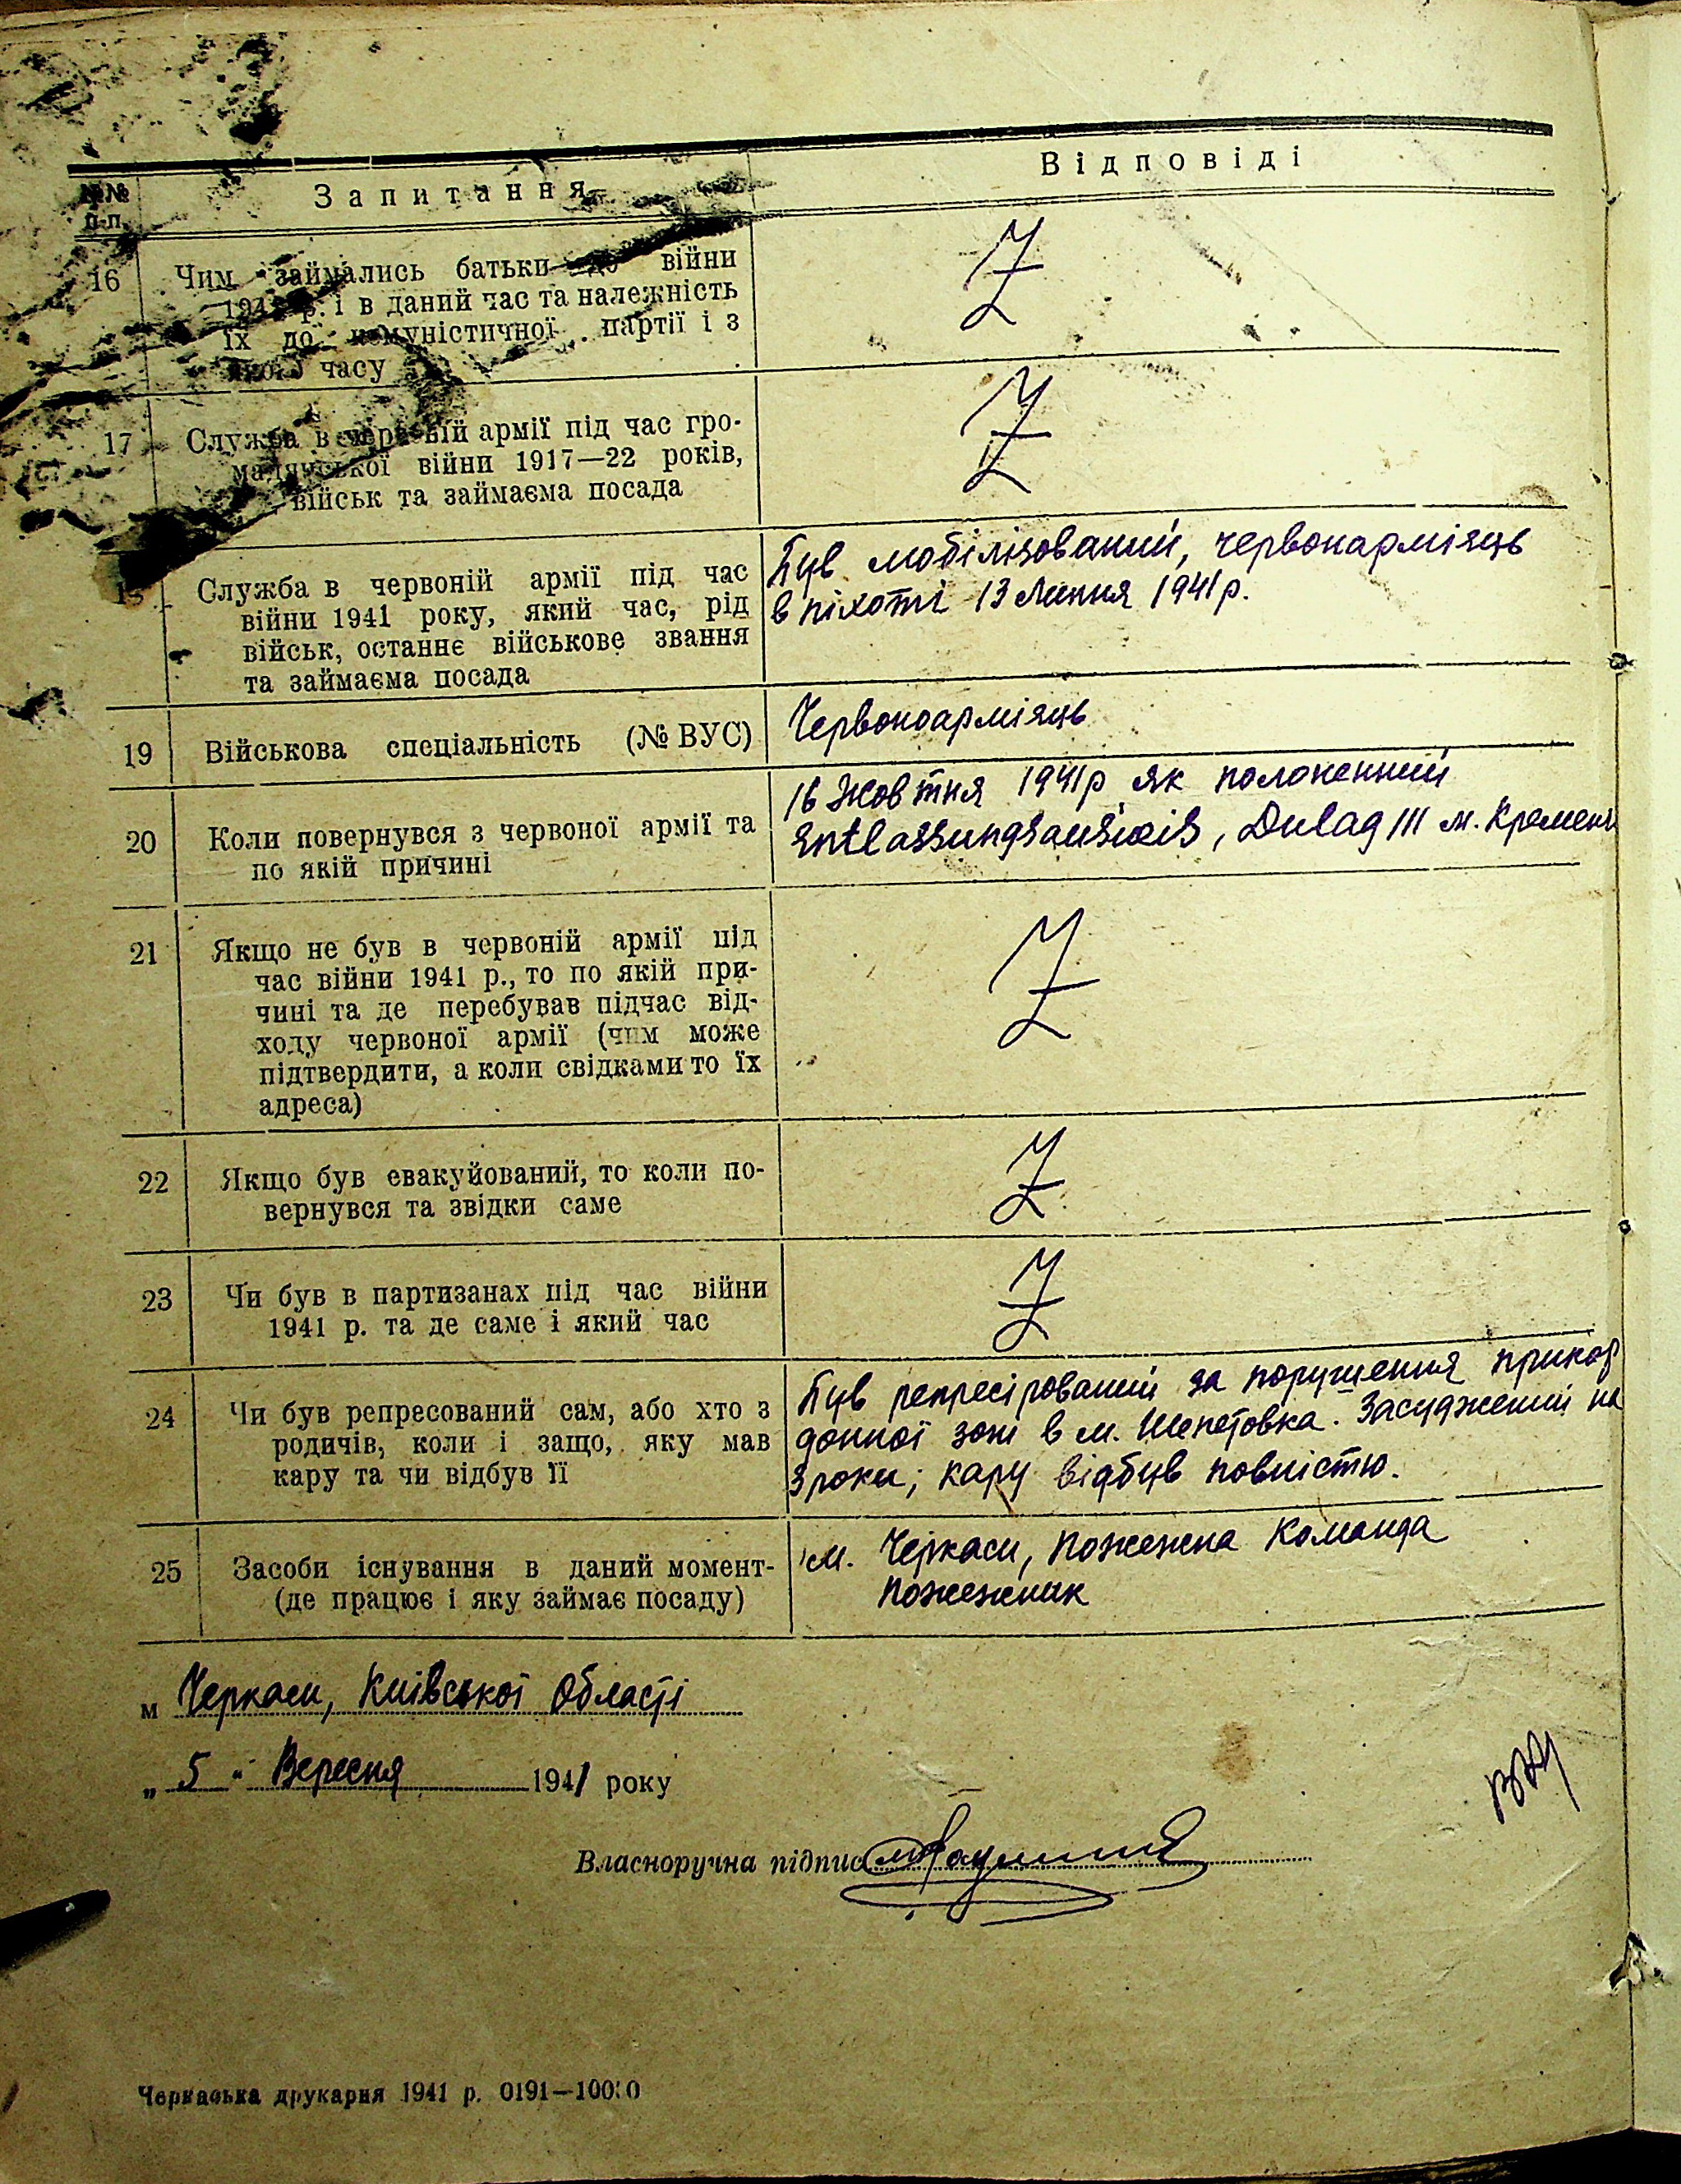 №№ п-п. Запитання Відповіді
16 Чим займались батьки до війни Z
1941 р. і в даний час та належність
їх до комуністичної партії і з
якого часу
17 Служба в червоній армії під час гро- Z
мадянської війни 1917—22 років,
військ та займаєма посада
18 Служба в червоній армії під час
війни 1941 року, який час, рід
військ, останнє військове звання
та займаєма посада
Був мобілізований, червонармієць
в піхоті 13 Липня 1941 р.
19 Військова спеціальність (№ ВУС) Червоноармієць
20 Коли повернувся з червоної армії та
по якій причині
16 Жовтня 1941 р як полонений
Entlassungsausweis, Dulag III м. Кремен
21 Якщо не був в червоній армії під Z
час війни 1941 р., то по якій при-
чині та де перебував підчас від-
ходу червоної армії (чим може
підтвердити, а коли свідками то їх
адреса)
22 Якщо був евакуйований, то коли по- Z
вернувся та звідки саме
23 Чи був в партизанах під час війни Z
1941 р. та де саме і який час
24 Чи був репресований сам, або хто з
родичів, коли і защо, яку мав
кару та чи відбув її
Був репресірований за порушення прикор
донної зони в м. Шепетовка. Засуджений на
3 роки; кару відбув повністю.
25 Засоби існування в даний момент-
(де працює і яку займає посаду)
м. Черкаси, Пожежна Команда
пожежник
м Черкаси, Київської Області
„ 5 " Вересня 1941 року
Власноручна підпис
Черкаська друкарня 1941 р. 0191—10000